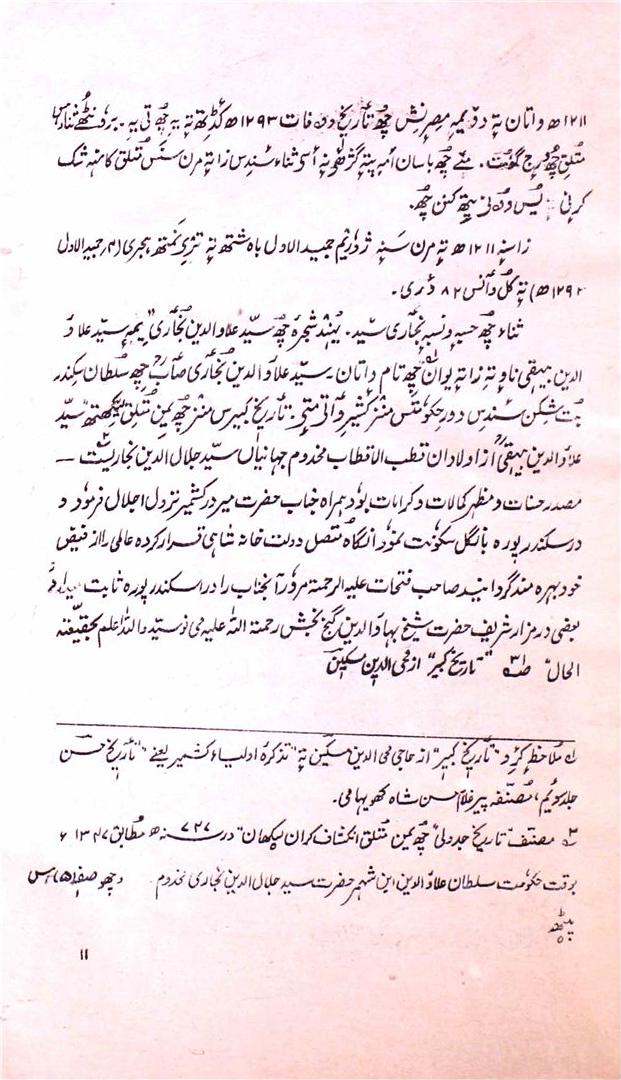 ۱۲۱۱ھ واتان تہٕ دوٚیمہِ مصرنش چھُ تٲریخ وفات ۱۲۹۳ھ کڈِتھ تہٕ یہِ چھُ تی یہ۔ برونٹھٕے ثناءس
متعلق چھُ درج گوٚمت۔ مےٚ چھُ باسان امہِ پیٹھٕ گژھہِ نہٕ اسہِ ثناء سٕندِس زا تہٕ مرن سنس متعلق کانہہ شک
کرنی یس ودنی پیٹھ کنن چھُ۔
زا سنہٕ ۱۲۱۱ھ تہٕ مرن سَنہٕ ژورِیم جمید الاول باہ شتھ تہٕ ترٛے نمتھ ہجری (۴؍ جمید الاول
۱۲۹۳ھ) تہٕ کُل وٲنس ۸۲ ؤری۔
ثناء چھُ حسبہٕ ونسبہٕ بخٲری سیّد۔ یُہند شجرہٕ چھُ سیّد علاو الدین بخٲری یمہٕ سیّد علاؤ
الدین بیہقی ناوٕ تہٕ زانہٕ یوان چھِ تام واتان۔ سیّد علاو الدین بخٲری صٲب چھِ سلطان سکندر
بُت شکن سٕندِس دورِ حکومتس منز کشیر وٲتی متی۔ تٲریخ کبیرس منز چھُ یمن متعلق لیکھتھ "سیّد
علاؤ الدین بیہقی از اولادان قطب الاقطاب مخدوم جہانیاں سیّد جلال الدین بخاریست —
مصدر حسنات و مظہر کمالات و کرامات بود ہمراہ جناب حضرت میر در کشمیر نزول اجلال فرمود و
در سکندرپورہ بانگل سکونت نمود آنگاہ متصل دولت خانہ شاہی قرار کردہ عالمی را از فیض
خود بہرہ مند گردانید صاحب فتحات علیہ الرحمۃ مرور آنجناب را در اسکندرپورہ ثابت میدارد
بعضی در مزار شریف حضرت شیخ بہاؤالدین گنج بخش رحمۃ اللہ علیہ می نویسند واللہ اعلم بحقیقتہ
الحال" ص۳ "تاریخ کبیر" از محی الدین مسکین
۱؎ ملاحظہٕ کٔرِو "تٲریخ کبیر" از حاجی محی الدین مسکین تہٕ "تذکرہ اولیاء کشمیر یعنے "تٲریخ حسن
جلد سویٚم، مصنفہ پیر غلام حسن شاہ کھویہامی۔
۲؎ مصنف "تاریخ جدولی" چھُ یمن متعلق انکشاف کران لیکھان "در سنہ ۷۲۷ھ مطابق ۱۳۴۷ء
بوقت حکومت سلطان علاؤ الدین این شہر حضرت سید جلال الدین بخاری مخدوم۔ وچھو صفحہ (۵) اس
پیٹھ
۱۱